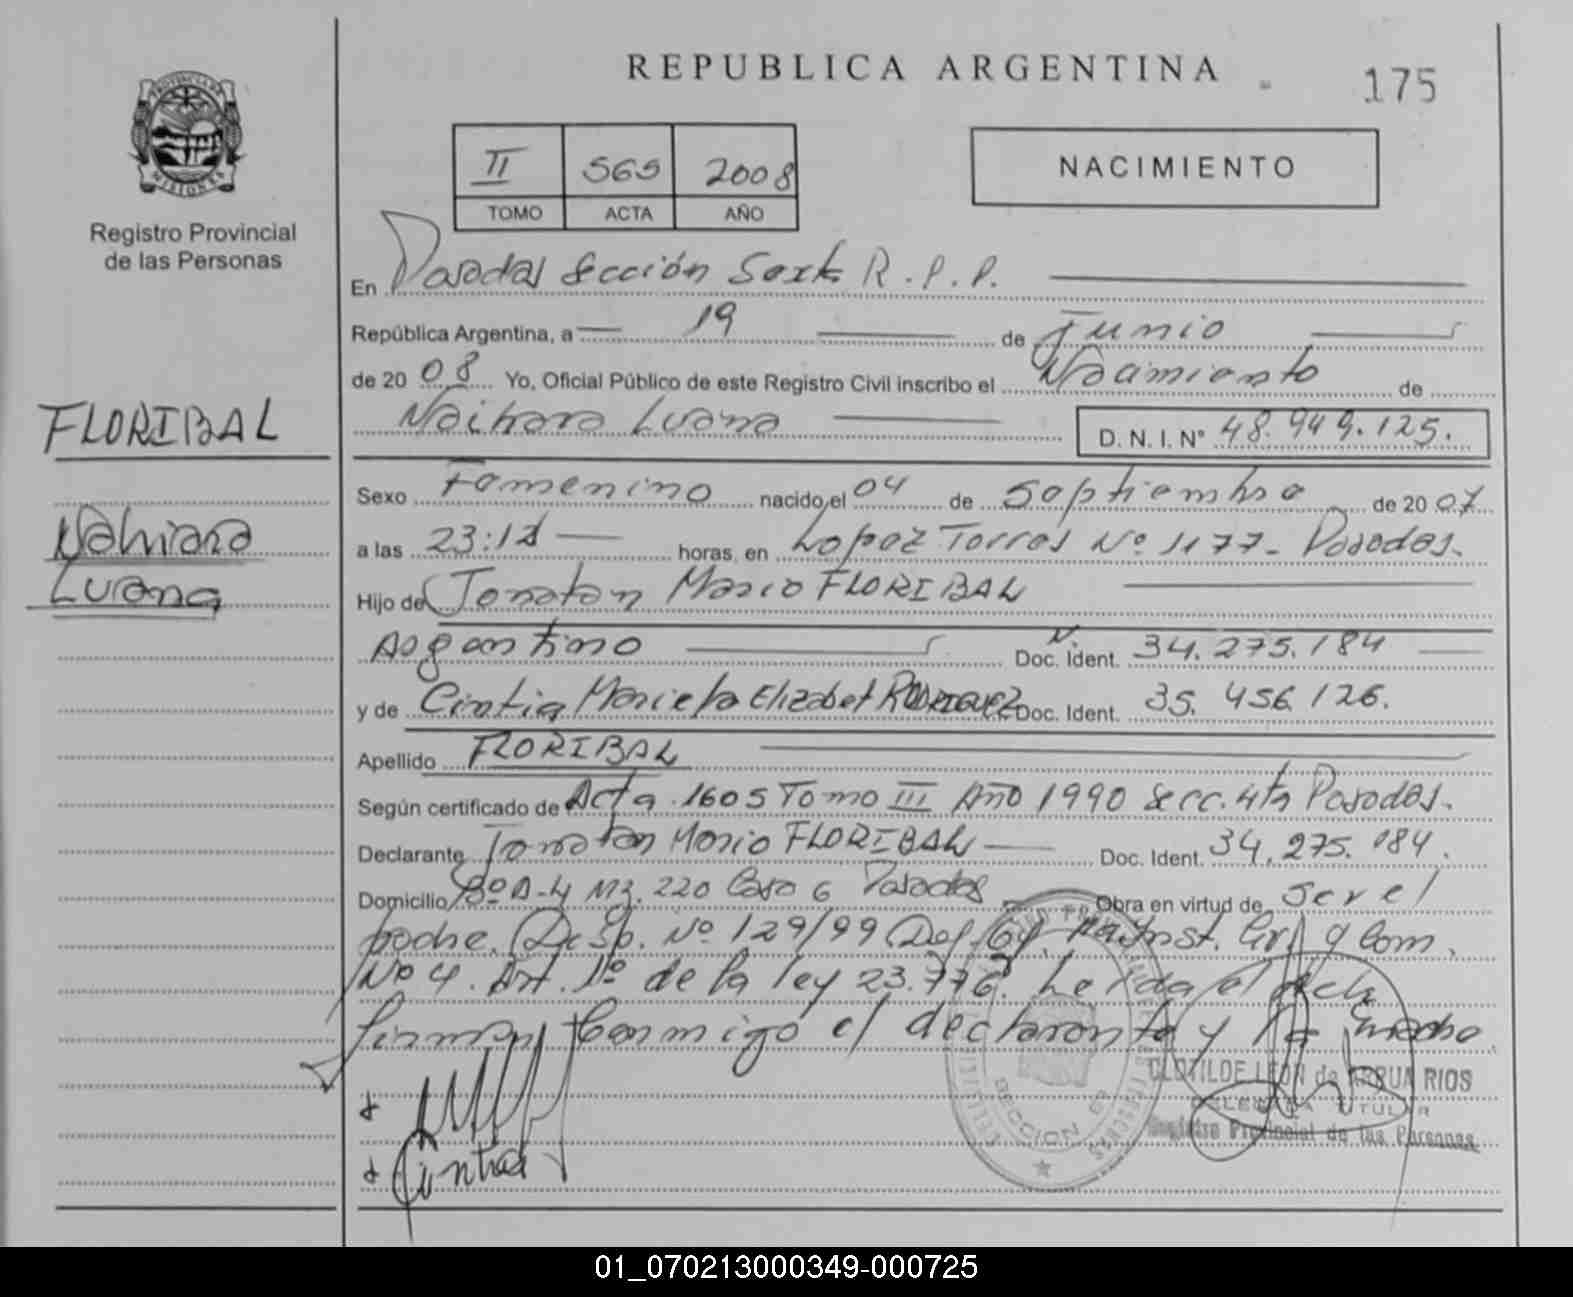 REPUBLICA ARGENTINA
175
PROVINCIA DE MISIONES
Registro Provincial
de las Personas
II 565 2008
TOMO ACTA AÑO
NACIMIENTO
En Posadas Sección Sexta R.P.P.
República Argentina, a 19 de Junio
de 20 08 Yo, Oficial Público de este Registro Civil inscribo el Nacimiento de
Naihara Luana D. N. I. N° 48.949.125.
FLORIBAL
Nahiara
Luana
Sexo Femenino nacido el 04 de Septiembre de 20 07
a las 23:12 horas, en Lopez Torres Nº 1177- Posadas.
Hijo de Jonatan Mario FLORIBAL
Argentino Doc. Ident. 34.275.184
y de Cintia Mariela Elizabet RODRIGUEZ Doc. Ident. 35.456.126.
Apellido FLORIBAL
Según certificado de Acta 1605 Tomo III Año 1990 Secc. 4ta Posadas.
Declarante Jonatan Mario FLORIBAL Doc. Ident. 34.275.184.
Domicilio Bº A-4 Mz. 220 Casa 6 Posadas Obra en virtud de ser el
padre. Disp. Nº 129/99 Inst. y Com.
Nº 4. Art. 1º de la ley 23.776. Leida el Acta
firman conmigo el declarante y la madre.
CLOTILDE LEON de ARRUA RIOS
DELEGADA TITULAR
Registro Provincial de las Personas
SECCION
Cintia
01_070213000349-000725